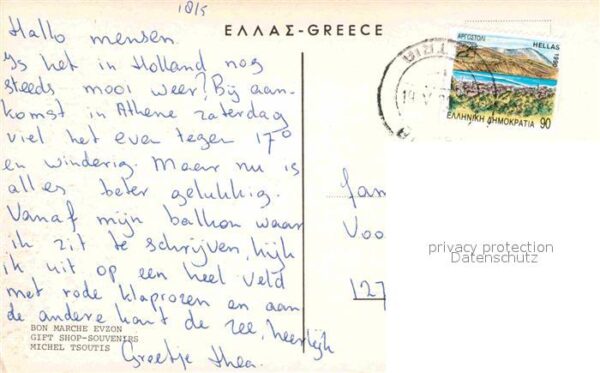 18/5
ΕΛΛΑΣ-GREECE
Hallo mensen.
Is het in Holland nog
steeds mooi weer? Bij aan-
komst in Athene zaterdag
viel het even tegen 17°
en winderig. Maar nu is
alles beter gelukkig.
Vanaf mijn balkon waar
ik zit te schrijven, kijk
ik uit op een heel veld
met rode klaprozen en aan
de andere kant de zee, heerlijk
Greetje Thea.
BON MARCHE EVZON
GIFT SHOP-SOUVENIRS
MICHEL TSOUTIS
ΑΡΓΟΣΤΟΛΙ
HELLAS
1990
ΕΛΛΗΝΙΚΗ ΔΗΜΟΚΡΑΤΙΑ 90
fam
Voo
127
privacy protection
Datenschutz